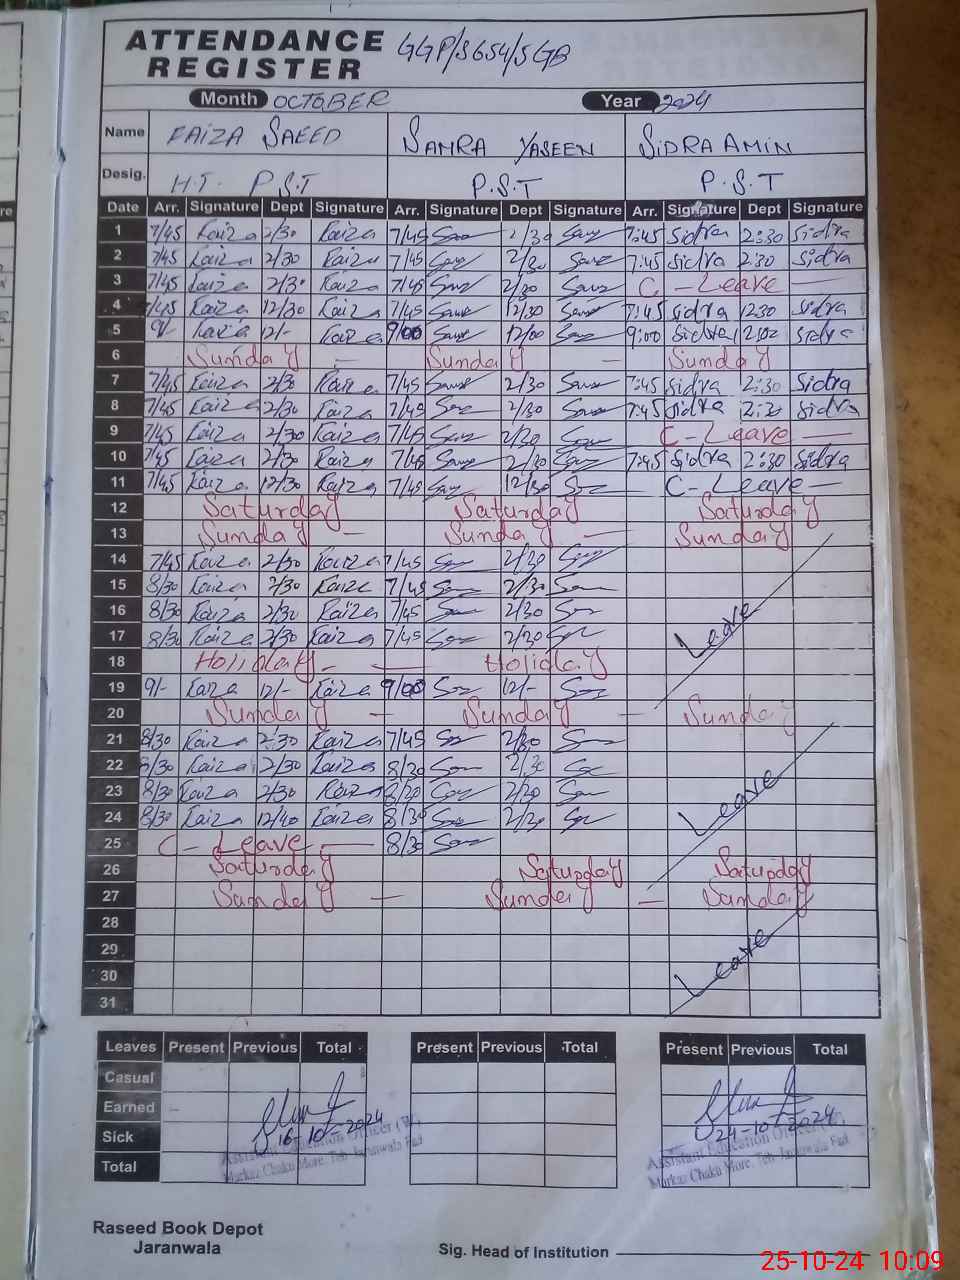 ATTENDANCE REGISTER GGP/5654/5GB
Month OCTOBER Year 2024
Name FAIZA SAEED SAMRA YASEEN SIDRA AMIN
Desig. H.T. P.S.T P.S.T P.S.T
Date Arr. Signature Dept Signature Arr. Signature Dept Signature Arr. Signature Dept Signature
1 7/45 Faiza 2/30 Faiza 7/45 2/30 7:45 Sidra 2:30 Sidra
2 7/45 Faiza 2/30 Faiza 7/45 2/30 7:45 Sidra 2:30 Sidra
3 7/45 Faiza 2/30 Faiza 7/45 2/30 C - Leave —
4 7/45 Faiza 12/30 Faiza 7/45 12/30 7:45 Sidra 1230 Sidra
5 9/- Faiza 12/- Faiza 9/00 12/00 9:00 Sidra 12:00 Sidra
6 Sunday — Sunday — Sunday
7 7/45 Faiza 2/30 Faiza 7/45 2/30 7:45 Sidra 2:30 Sidra
8 7/45 Faiza 2/30 Faiza 7/45 2/30 7:45 Sidra 2:30 Sidra
9 7/45 Faiza 2/30 Faiza 7/45 2/30 C - Leave —
10 7/45 Faiza 2/30 Faiza 7/45 2/30 7:45 Sidra 2:30 Sidra
11 7/45 Faiza 12/30 Faiza 7/45 12/30 C - Leave —
12 Saturday Saturday Saturday
13 Sunday — Sunday — Sunday
14 7/45 Faiza 2/30 Faiza 7/45 2/30
15 8/30 Faiza 2/30 Faiza 7/45 2/30
16 8/30 Faiza 2/30 Faiza 7/45 2/30 Leave
17 8/30 Faiza 2/30 Faiza 7/45 2/30
18 Holiday — Holiday
19 9/- Faiza 12/- Faiza 9/00 12/-
20 Sunday — Sunday — Sunday
21 8/30 Faiza 2:30 Faiza 7/45 2/30
22 8/30 Faiza 2/30 Faiza 8/30 2/30
23 8/30 Faiza 2/30 Faiza 8/30 2/30 Leave
24 8/30 Faiza 12/40 Faiza 8/30 2/30
25 C - Leave — 8/30
26 Saturday Saturday Saturday
27 Sunday — Sunday — Sunday
28
29 Leave
30
31
Leaves Present Previous Total Present Previous Total Present Previous Total
Casual
Earned
Sick 16-10-2024 24-10-2024
Total
Assistant Education Officer (W)
Markaz Chaku More, Teh Jaranwala Fsd
Assistant Education Officer (W)
Markaz Chaku More, Teh Jaranwala Fsd
Raseed Book Depot
Jaranwala
Sig. Head of Institution
25-10-24 10:09